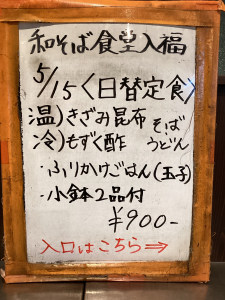 和そば食堂入福
5/15〈日替定食〉
温)きざみ昆布 そば
冷)もずく酢 うどん
・ふりかけごはん(玉子)
・小鉢2品付
¥900-
入口はこちら⇒